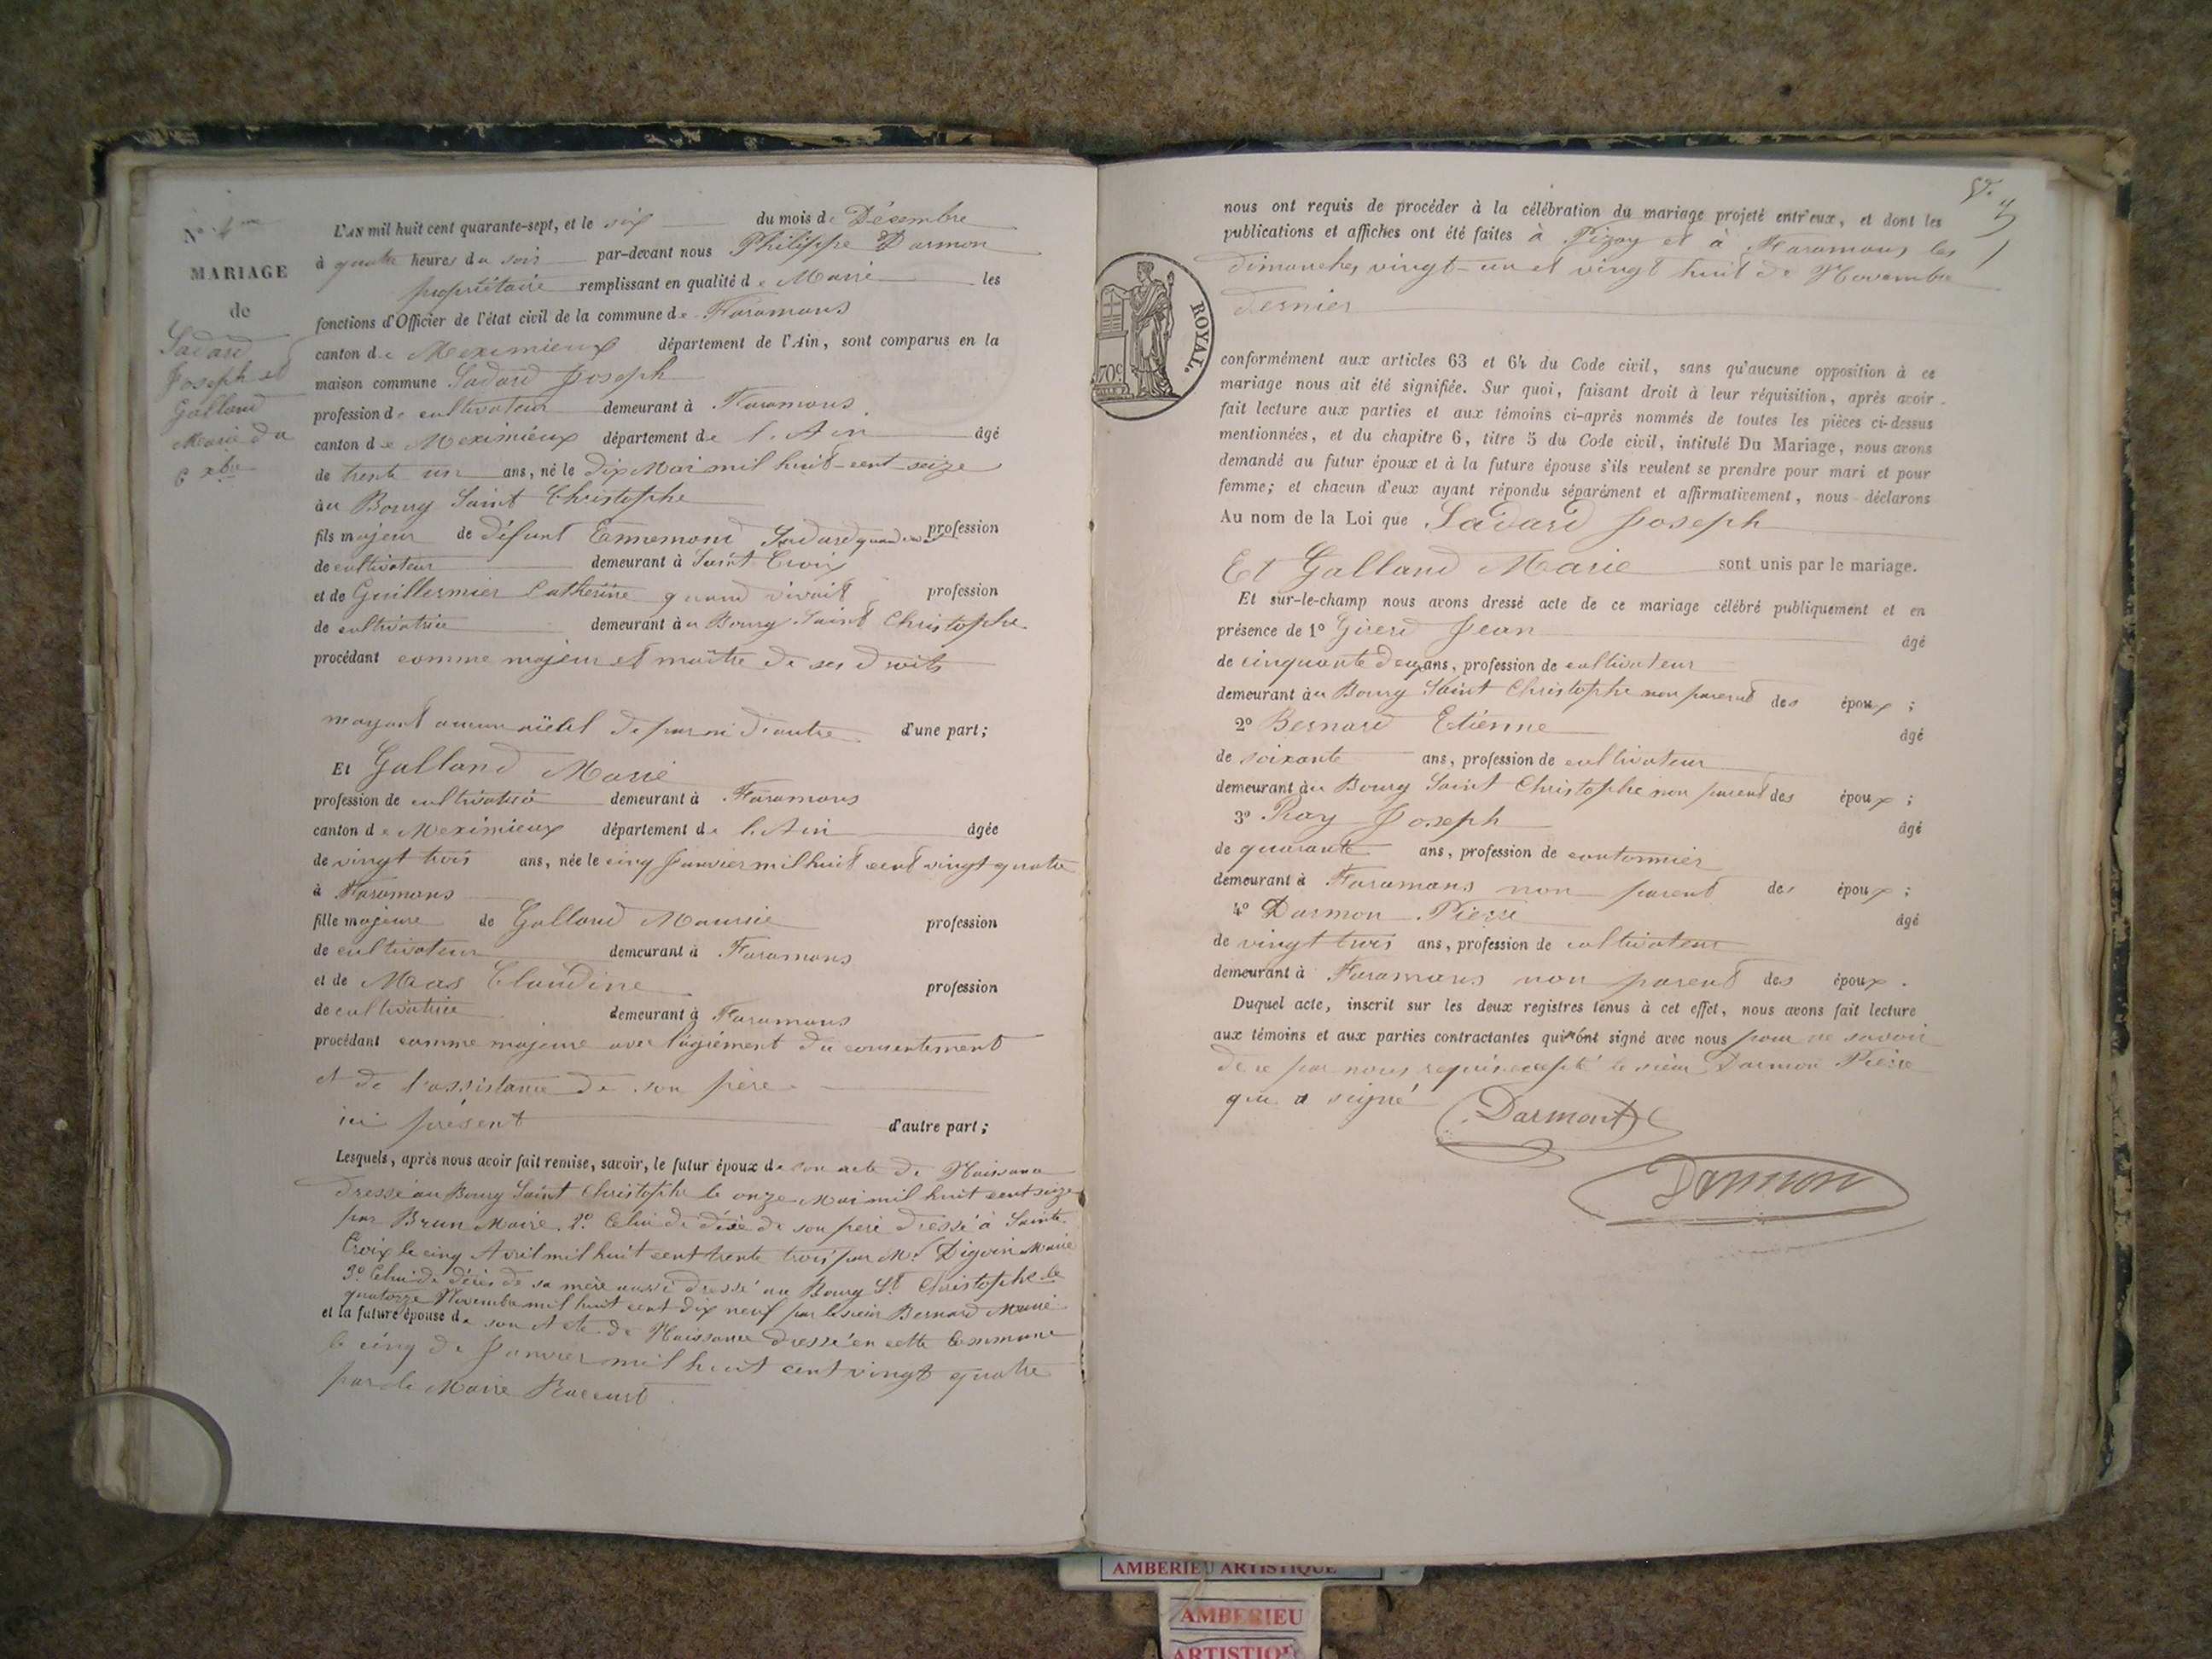 MARIAGE
de
Sadard
Joseph et
Galland
Marie du
6 Xbre
L'AN mil huit cent quarante-sept, et le six du mois de Décembre
à quatre heures du soir par-devant nous Philippe Darmon
propriétaire remplissant en qualité de Maire les
fonctions d'Officier de l'état civil de la commune de Faramans
canton de Meximieux département de l'Ain, sont comparus en la
maison commune Sadard Joseph
profession de cultivateur demeurant à Faramans
canton de Meximieux département de l'Ain âgé
de trente un ans, né le dix Mai mil huit cent seize
au Bourg Saint Christophe
fils majeur de défunt Ennemond Sadard quand vivait profession
de cultivateur demeurant à Saint Croix
et de Guillermier Catherine quand vivait profession
de cultivatrice demeurant au Bourg Saint Christophe
procédant comme majeur et maître de ses droits
n'ayant aucun aïeul de part ni d'autre d'une part;
Et Galland Marie
profession de cultivatrice demeurant à Faramans
canton de Meximieux département de l'Ain âgée
de vingt trois ans, née le cinq Janvier mil huit cent vingt quatre
à Faramans
fille majeure de Galland Maurice profession
de cultivateur demeurant à Faramans
et de Mas Claudine profession
de cultivatrice demeurant à Faramans
procédant comme majeure avec l'agrément du consentement
et de l'assistance de son père
ici présent d'autre part;
Lesquels, après nous avoir fait remise, savoir, le futur époux de son acte de Naissance
dressé au Bourg Saint Christophe le onze Mai mil huit cent seize
par Brun Maire. 2º Celui de décè de son père dressé à Sainte
Croix le cinq Avril mil huit cent trente trois par Mr Digoin Maire
3º Celui de décès de sa mère aussi dressé au Bourg St Christophe le
quatorze Novembre mil huit cent dix neuf par le sieur Bernard Maire
et la future épouse de son Acte de Naissance dressé en cette Commune
le cinq de Janvier mil huit cent vingt quatre
par le Maire Raccurt
5
nous ont requis de procéder à la célébration du mariage projeté entr'eux, et dont les
publications et affiches ont été faites à Pizay et à Faramans les
dimanches vingt-un et vingt huit de Novembre
dernier
ROYAL.
70c
conformément aux articles 63 et 64 du Code civil, sans qu'aucune opposition à ce
mariage nous ait été signifiée. Sur quoi, faisant droit à leur réquisition, après avoir
fait lecture aux parties et aux témoins ci-après nommés de toutes les pièces ci-dessus
mentionnées, et du chapitre 6, titre 5 du Code civil, intitulé Du Mariage, nous avons
demandé au futur époux et à la future épouse s'ils veulent se prendre pour mari et pour
femme; et chacun d'eux ayant répondu séparément et affirmativement, nous déclarons
Au nom de la Loi que Sadard Joseph
Et Galland Marie sont unis par le mariage.
Et sur-le-champ nous avons dressé acte de ce mariage célébré publiquement et en
présence de 1º Girerd Jean âgé
de cinquante deux ans, profession de cultivateur
demeurant au Bourg Saint Christophe non parent des époux;
2º Bernard Etienne âgé
de soixante ans, profession de cultivateur
demeurant au Bourg Saint Christophe non parent des époux;
3º Ray Joseph âgé
de quarante ans, profession de cantonnier
demeurant à Faramans non parent des époux;
4º Darmon Pierre âgé
de vingt trois ans, profession de cultivateur
demeurant à Faramans non parent des époux.
Duquel acte, inscrit sur les deux registres tenus à cet effet, nous avons fait lecture
aux témoins et aux parties contractantes qui n'ont signé avec nous pour ne savoir
de ce par nous requis excepté le sieur Darmon Pierre
qui a signé Darmont
Darmon
AMBERIEU ARTISTIQUE
AMBERIEU
ARTISTIQUE